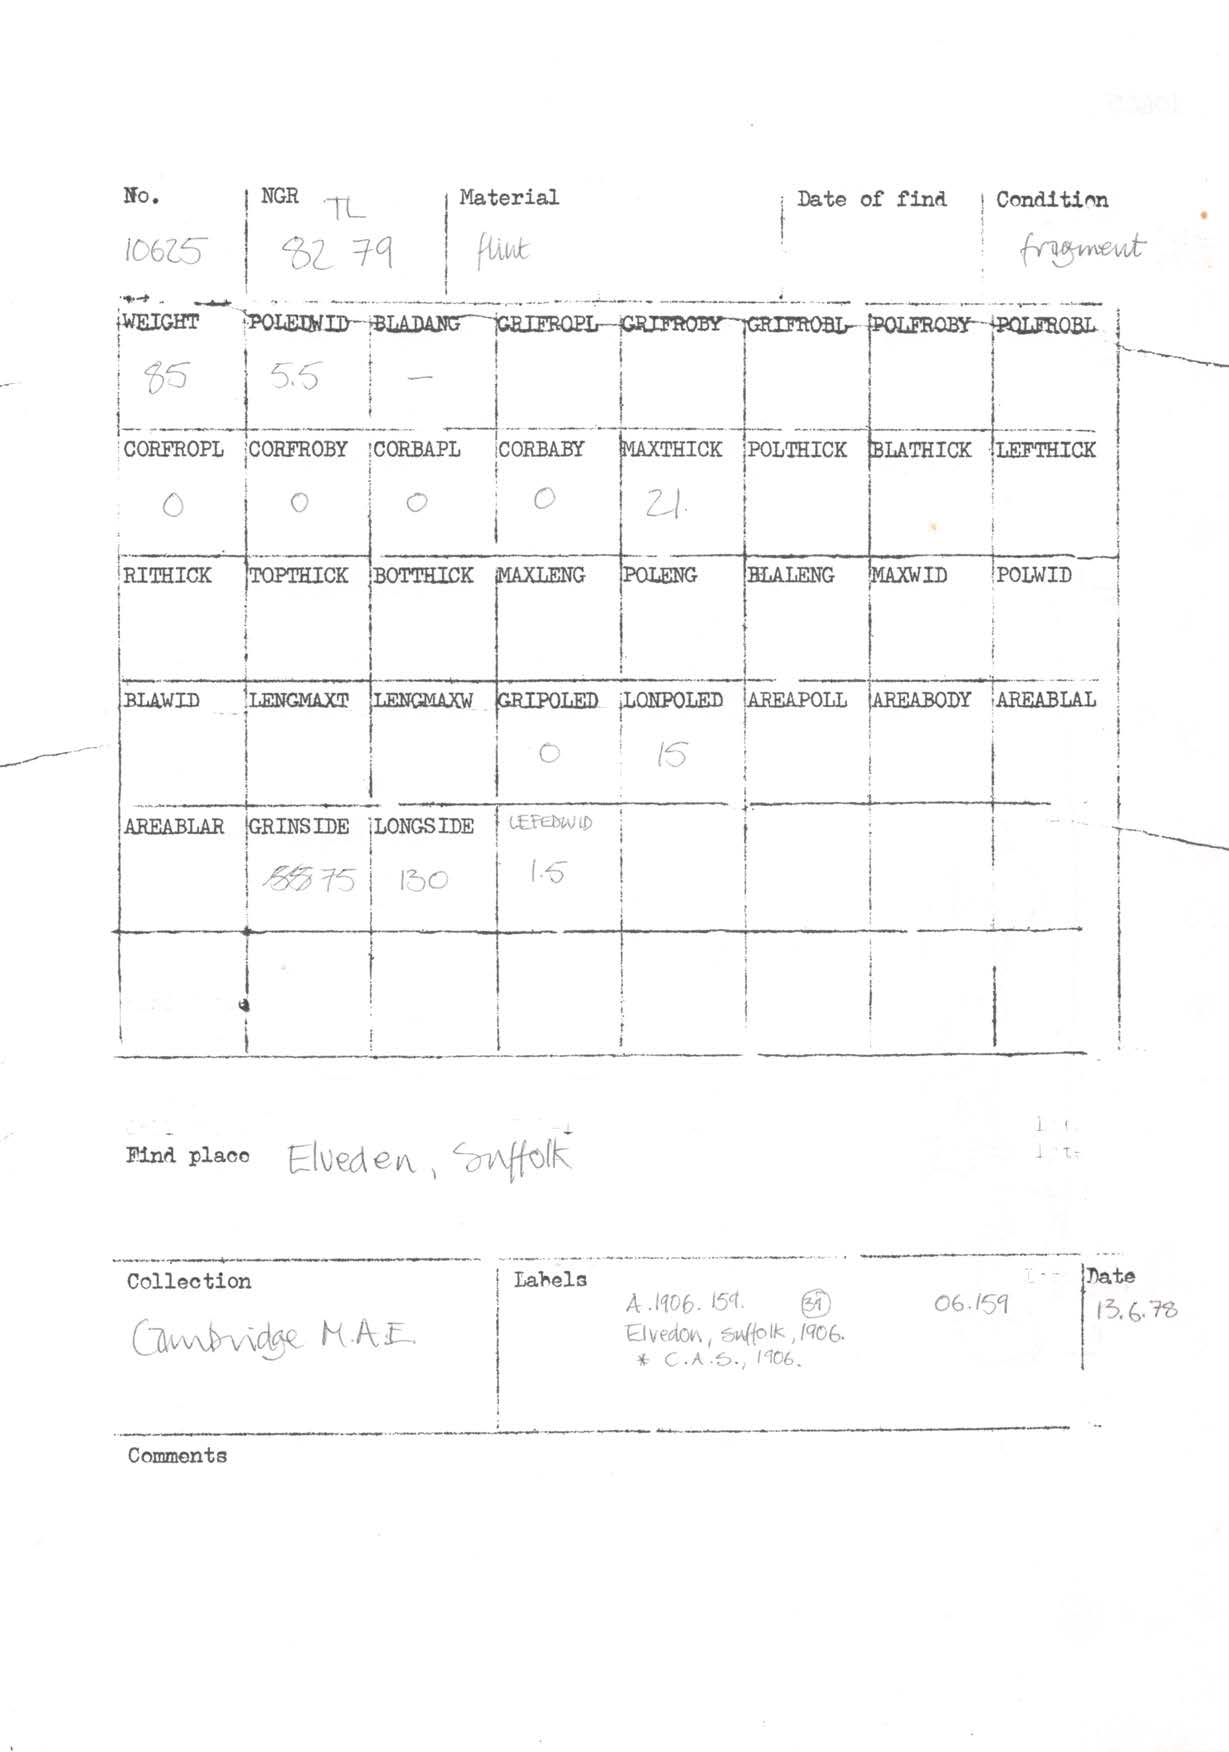 No. NGR TL Material Date of find Condition
10625 82 79 flint fragment
WEIGHT POLEDWID BLADANG GRIFROPL GRIFROBY GRIFROBL POLFROBY POLFROBL
85 5.5 —
CORFROPL CORFROBY CORBAPL CORBABY MAXTHICK POLTHICK BLATHICK LEFTHICK
0 0 0 0 21.
RITHICK TOPTHICK BOTTHICK MAXLENG POLENG BLALENG MAXWID POLWID
BLAWID LENGMAXT LENGMAXW GRIPOLED LONPOLED AREAPOLL AREABODY AREABLAL
0 15
AREABLAR GRINSIDE LONGSIDE LEFEDWID
75 130 1.5
Find place Elveden, Suffolk
Collection Labels Date
A.1906.159. 39 06.159 13.6.78
Cambridge M.A.E. Elvedon, Suffolk, 1906.
* C.A.S., 1906.
Comments